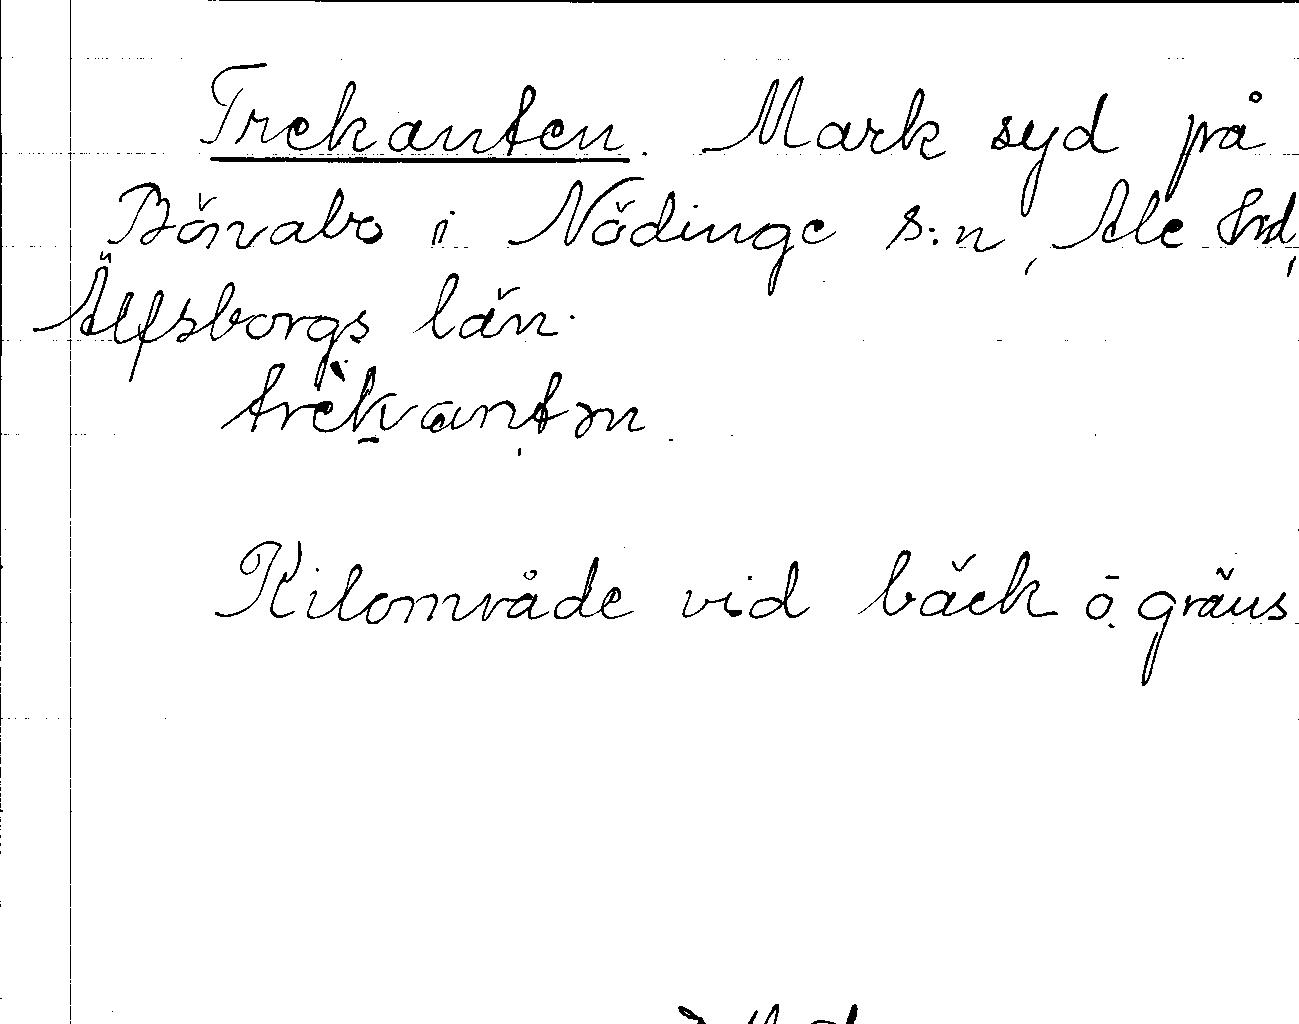 Trekanten. Mark syd på
Bönabo i Nödinge s:n, Ale hd,
Älfsborgs län.
Kilområde vid bäck o. gräns